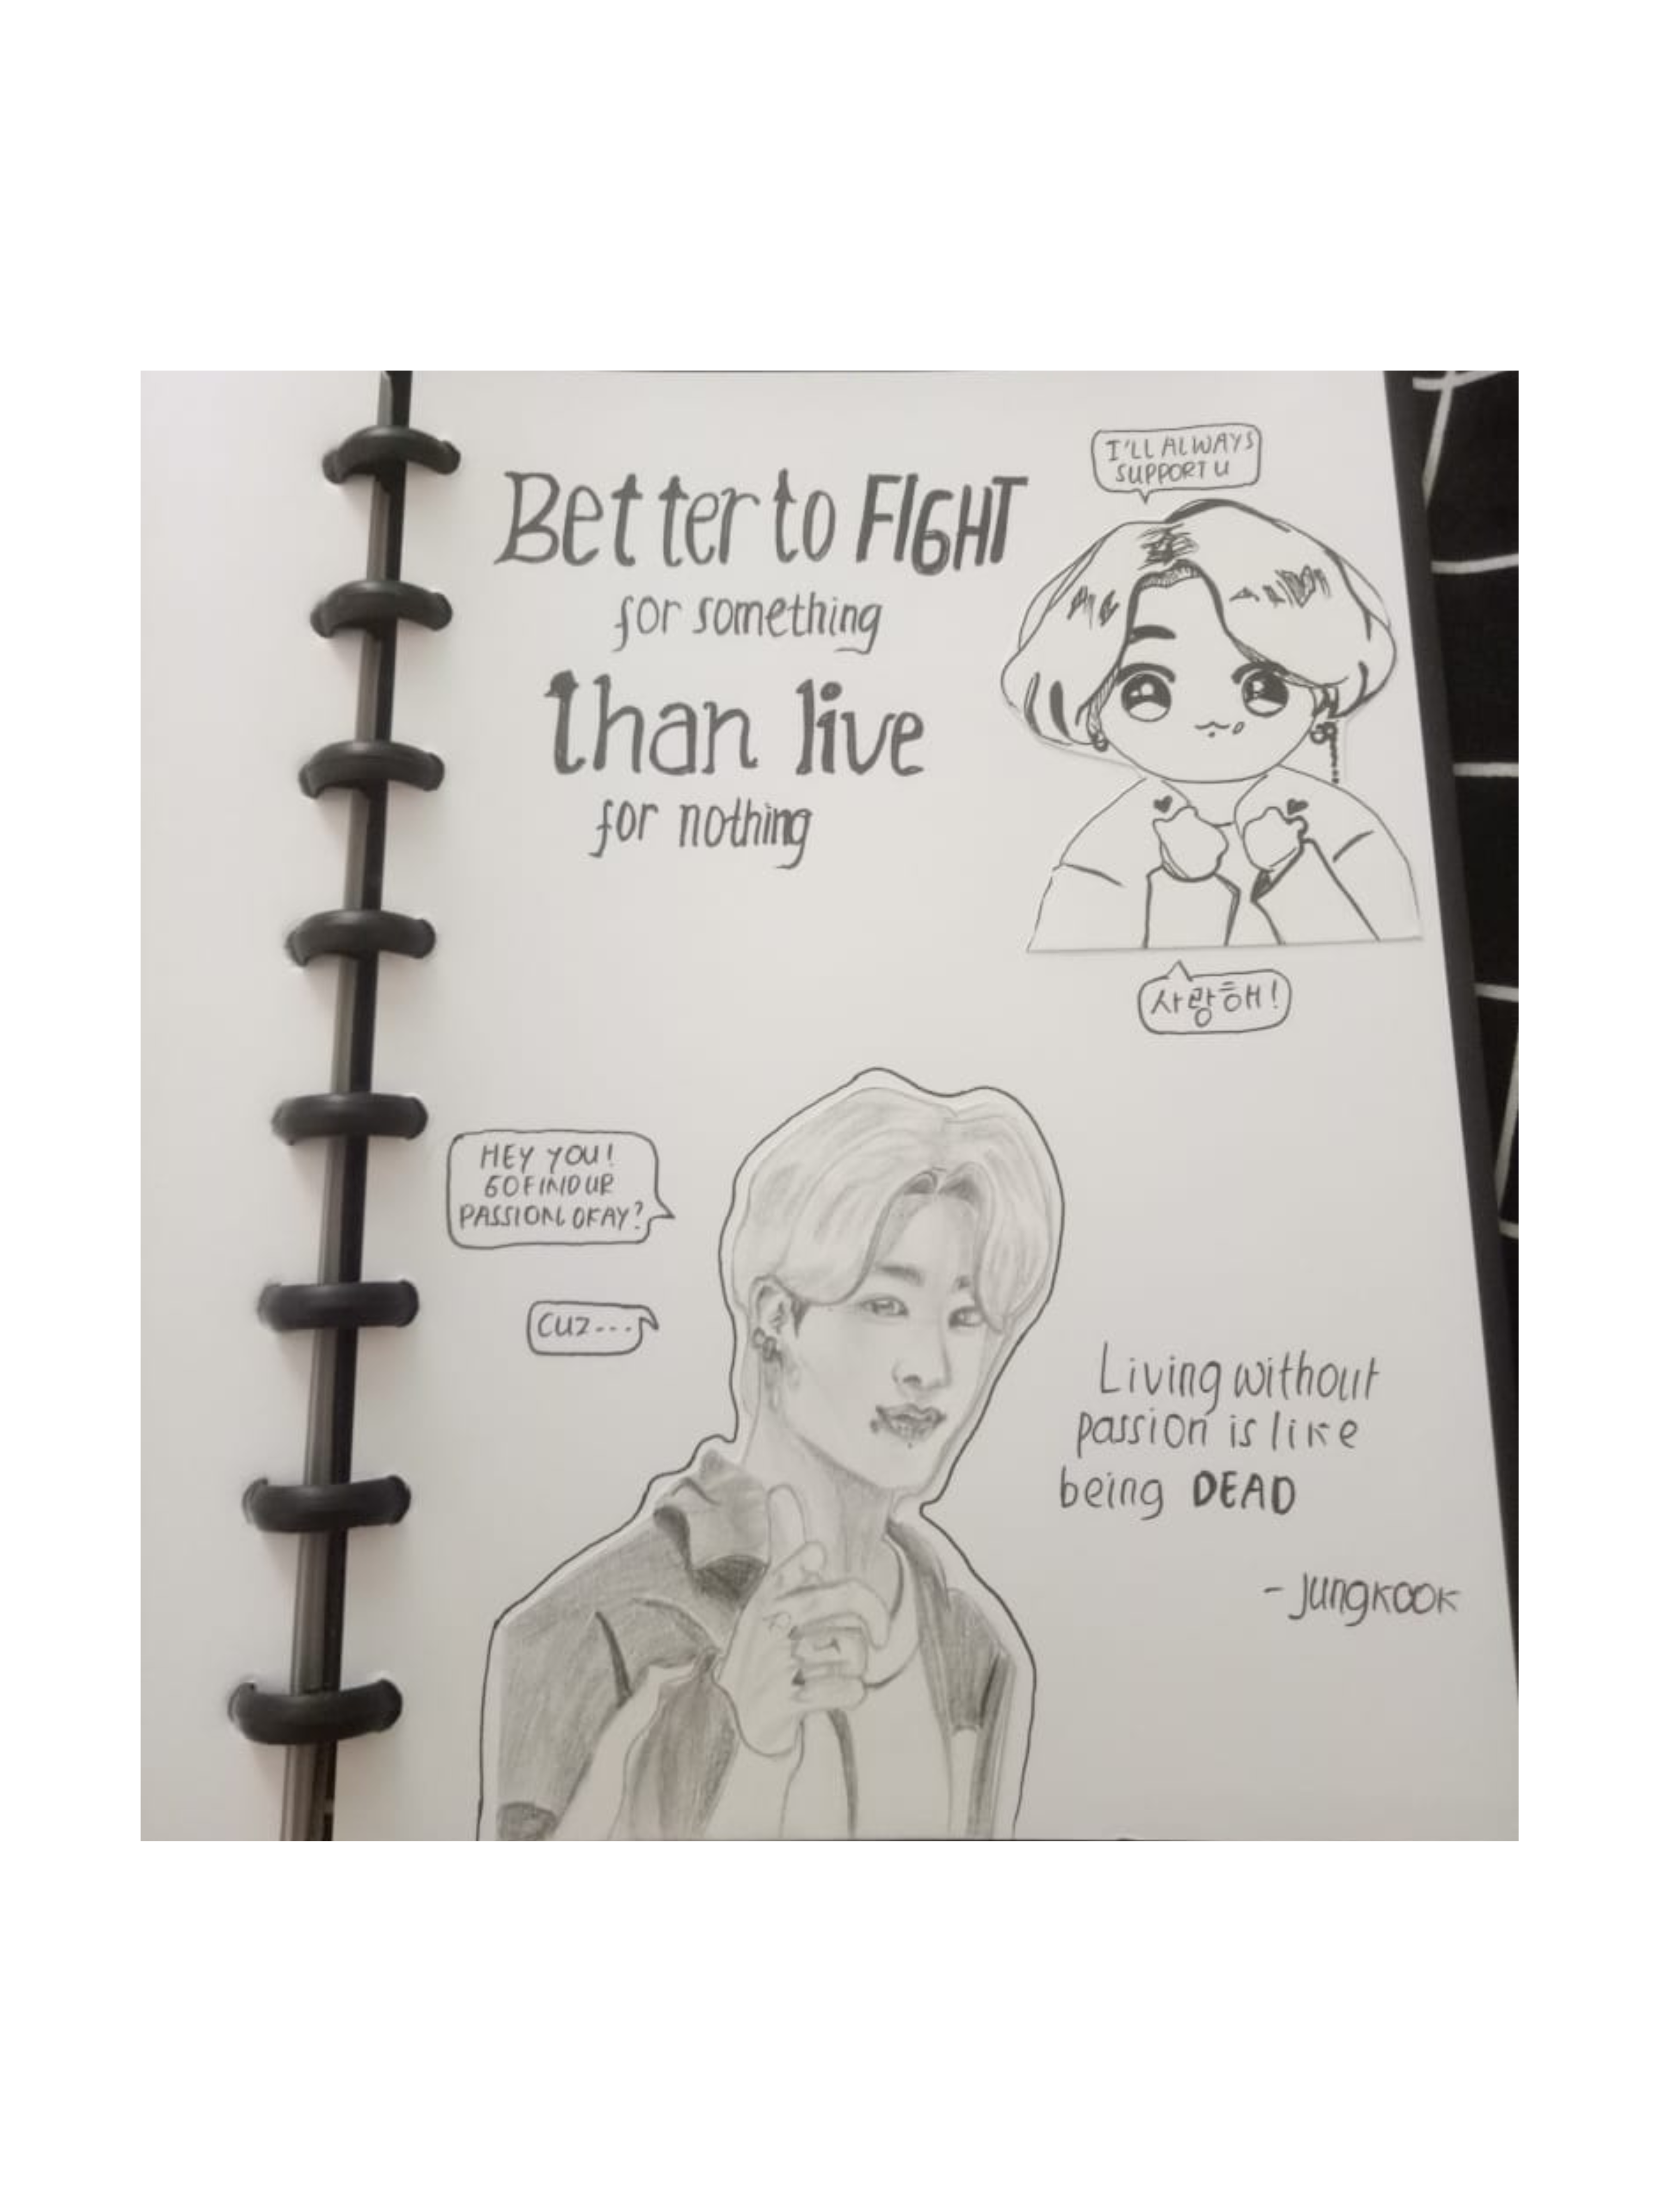 Better to FIGHT
for something
than live
for nothing
I'LL ALWAYS
SUPPORT U
사랑해!
HEY YOU!
GO FIND UR
PASSION OKAY?
CUZ...
Living without
passion is like
being DEAD
- Jungkook